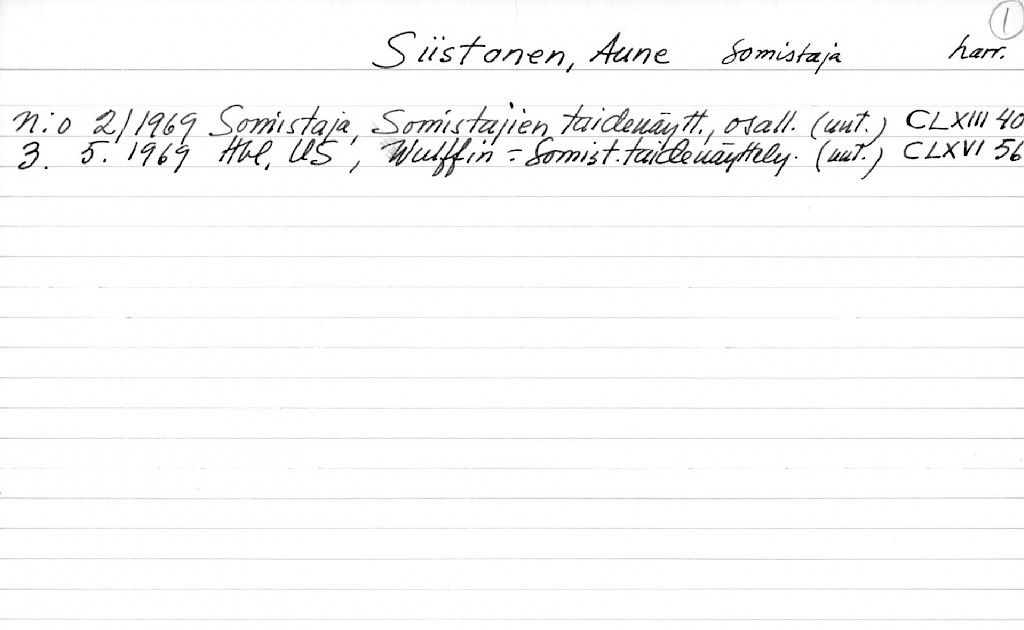 1
Siistonen, Aune somistaja harr.
N:o 2/1969 Somistaja, Somistajien taidenäytt., osall. (uut.) CLXIII 40
3. 5. 1969 Hbl, US, Wulffin = Somist. taidenäyttely. (uut.) CLXVI 56